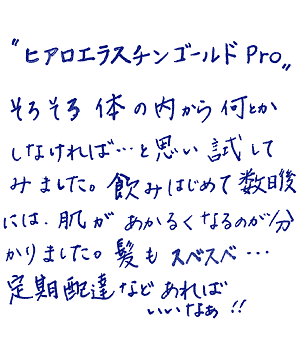 "ヒアロエラスチンゴールド Pro"
そろそろ 体の内から何とか
しなければ…と思い試して
みました。飲みはじめて数日後
には、肌があかるくなるのが分
かりました。髪もスベスベ…
定期配達などあれば
いいなぁ!!